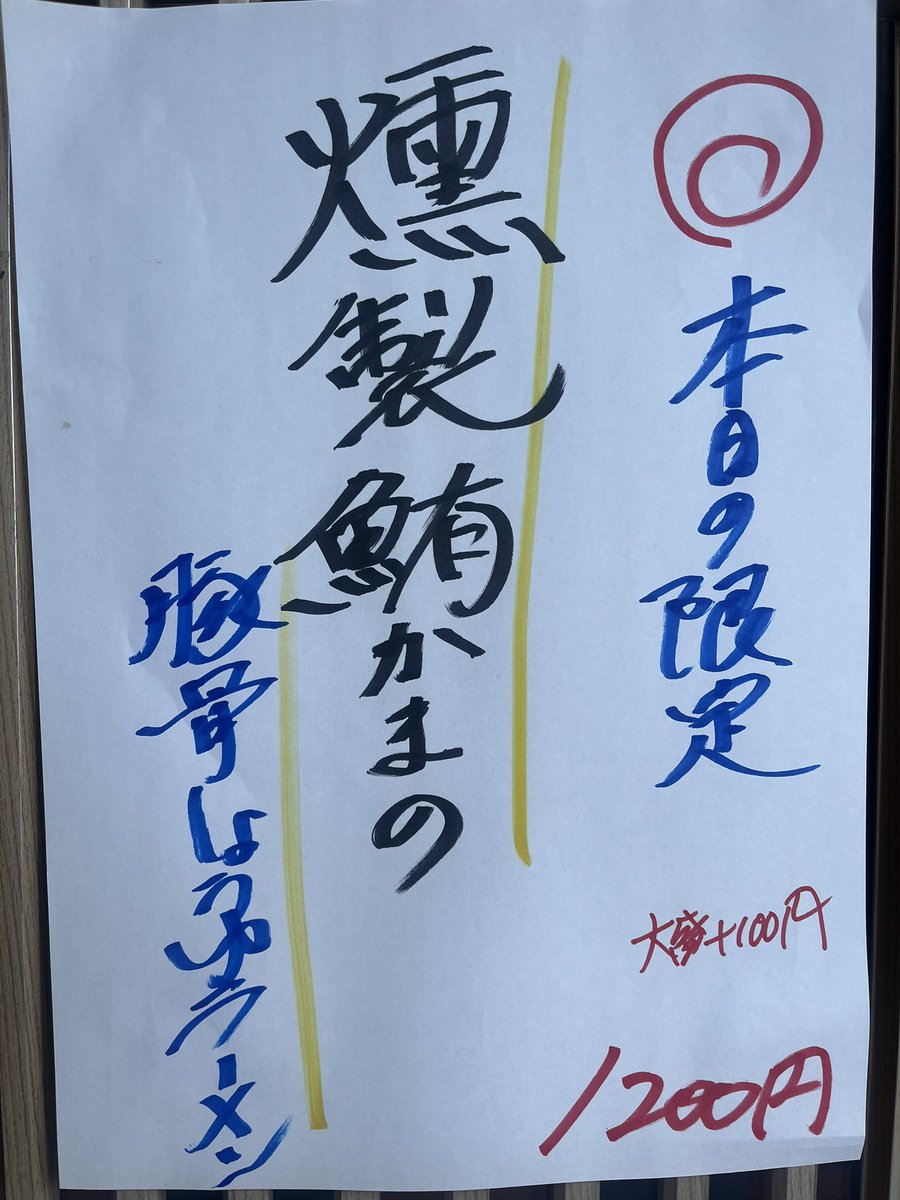 本日の限定
燻製鮪かまの
豚骨しょうゆラーメン
大盛+100円
1200円